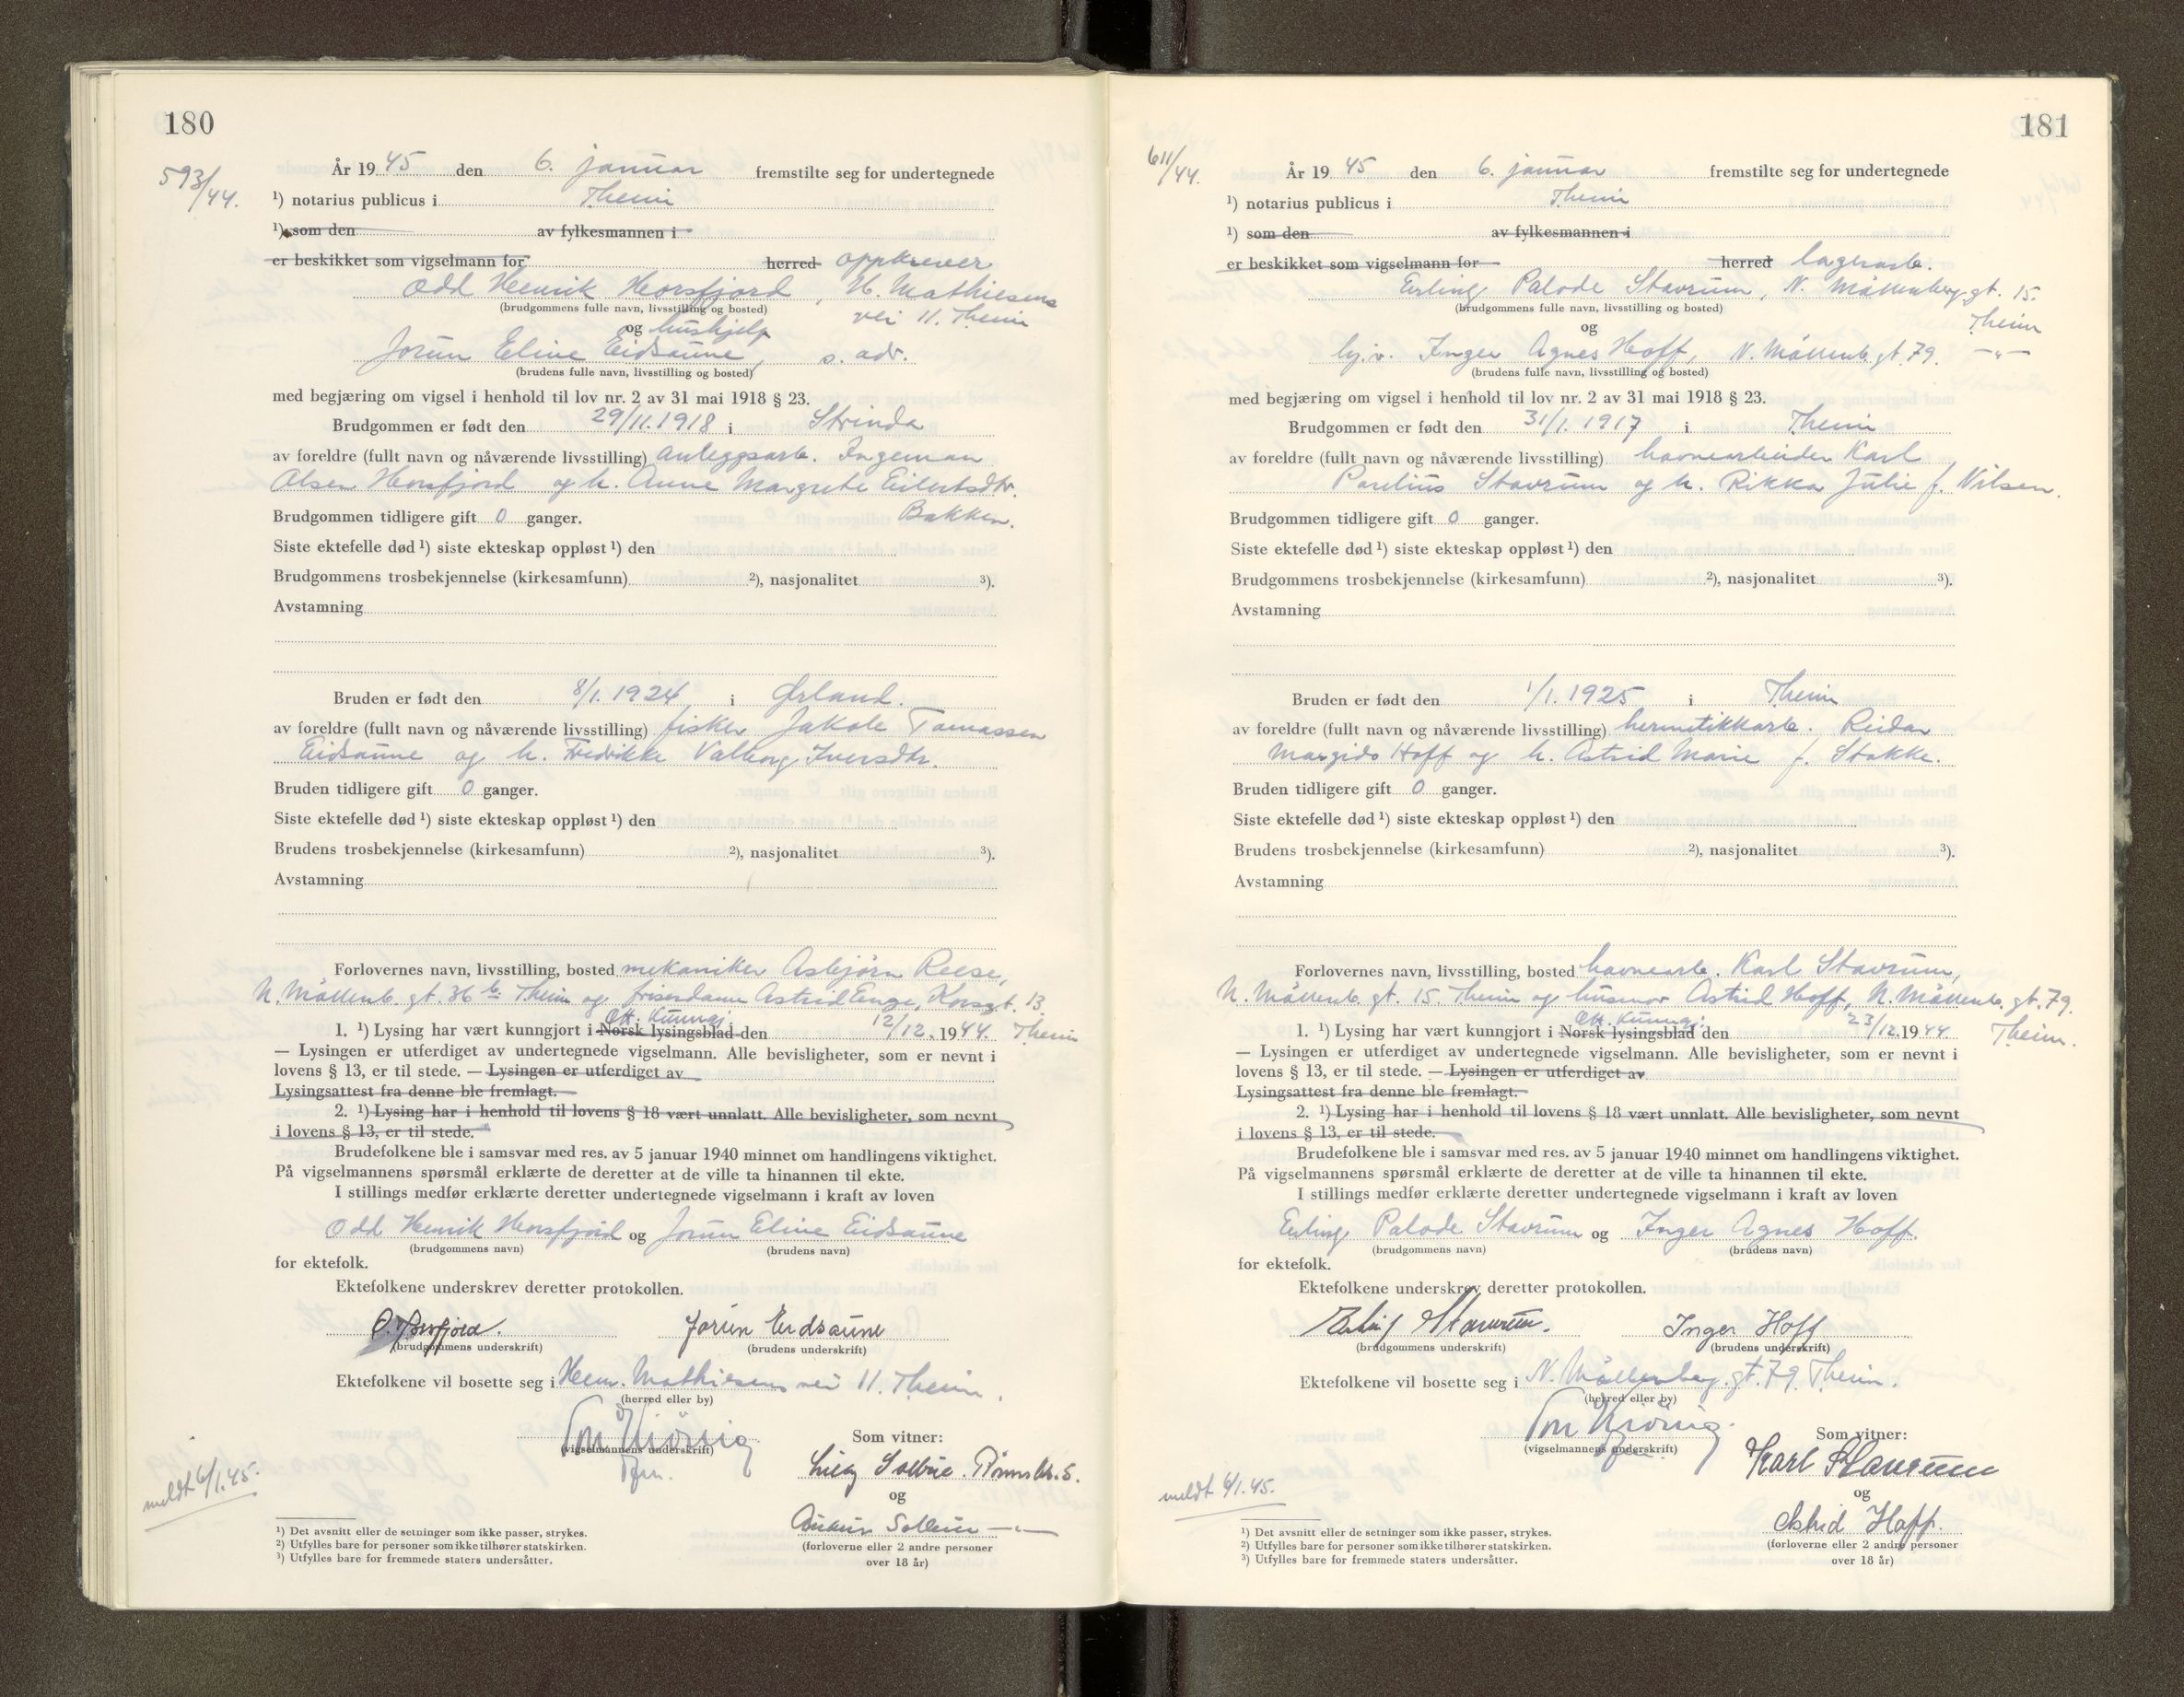 180
593/44.
År 1945 den 6. januar fremstilte seg for undertegnede
¹) notarius publicus i Theim
¹) som den av fylkesmannen i
er beskikket som vigselmann for herred oppkrever
Odd Henrik Horsfjord, H. Mathiesens
(brudgommens fulle navn, livsstilling og bosted) vei 11. Theim
og hushjelp
Jorun Eline Eidsaune, s. adr.
(brudens fulle navn, livsstilling og bosted)
med begjæring om vigsel i henhold til lov nr. 2 av 31 mai 1918 § 23.
Brudgommen er født den 29/11.1918 i Strinda
av foreldre (fullt navn og nåværende livsstilling) anleggsarb. Ingeman
Olsen Horsfjord og h. Anne Margrete Eilertsdtr.
Brudgommen tidligere gift 0 ganger. Bakken.
Siste ektefelle død ¹) siste ekteskap oppløst ¹) den
Brudgommens trosbekjennelse (kirkesamfunn) ²), nasjonalitet ³).
Avstamning
Bruden er født den 8/1.1924 i Ørland.
av foreldre (fullt navn og nåværende livsstilling) fisker Jakob Tomassen
Eidsaune og h. Fredrikke Valborg Iversdtr.
Bruden tidligere gift 0 ganger.
Siste ektefelle død ¹) siste ekteskap oppløst ¹) den
Brudens trosbekjennelse (kirkesamfunn) ²), nasjonalitet ³).
Avstamning
Forlovernes navn, livsstilling, bosted mekaniker Asbjørn Reese,
N. Möllenb. gt. 36 b Theim og frisørdame Astrid Enge, Korsgt. 13.
Off. kunngj.
1. ¹) Lysing har vært kunngjort i Norsk lysingsblad den 12/12.1944. Theim
— Lysingen er utferdiget av undertegnede vigselmann. Alle bevisligheter, som er nevnt i
lovens § 13, er til stede. — Lysingen er utferdiget av
Lysingsattest fra denne ble fremlagt.
2. ¹) Lysing har i henhold til lovens § 18 vært unnlatt. Alle bevisligheter, som nevnt
i lovens § 13, er til stede.
Brudefolkene ble i samsvar med res. av 5 januar 1940 minnet om handlingens viktighet.
På vigselmannens spørsmål erklærte de deretter at de ville ta hinannen til ekte.
I stillings medfør erklærte deretter undertegnede vigselmann i kraft av loven
Odd Henrik Horsfjord og Jorun Eline Eidsaune
(brudgommens navn) (brudens navn)
for ektefolk.
Ektefolkene underskrev deretter protokollen.
O. Horsfjord. Jorun Eidsaune
(brudgommens underskrift) (brudens underskrift)
Ektefolkene vil bosette seg i Henr. Mathiesens vei 11. Theim.
(herred eller by)
(vigselmannens underskrift)
Som vitner:
og
(forloverne eller 2 andre personer
over 18 år)
meldt 6/1.45.
¹) Det avsnitt eller de setninger som ikke passer, strykes.
²) Utfylles bare for personer som ikke tilhører statskirken.
³) Utfylles bare for fremmede staters undersåtter.
181
611/44.
År 1945 den 6. januar fremstilte seg for undertegnede
¹) notarius publicus i Theim
¹) som den av fylkesmannen i
er beskikket som vigselmann for herred lagerarb.
Erling Palode Stavrum, N. Möllenberg gt. 15.
(brudgommens fulle navn, livsstilling og bosted) Theim
og
hj.v. Inger Agnes Hoff, N. Möllenb. gt. 79. —"—
(brudens fulle navn, livsstilling og bosted)
med begjæring om vigsel i henhold til lov nr. 2 av 31 mai 1918 § 23.
Brudgommen er født den 31/1.1917 i Theim
av foreldre (fullt navn og nåværende livsstilling) havnearbeider Karl
Parelius Stavrum og h. Rikka Julie f. Nilsen.
Brudgommen tidligere gift 0 ganger.
Siste ektefelle død ¹) siste ekteskap oppløst ¹) den
Brudgommens trosbekjennelse (kirkesamfunn) ²), nasjonalitet ³).
Avstamning
Bruden er født den 1/1.1925 i Theim
av foreldre (fullt navn og nåværende livsstilling) hermetikkarb. Reidar
Margido Hoff og h. Astrid Marie f. Stokke.
Bruden tidligere gift 0 ganger.
Siste ektefelle død ¹) siste ekteskap oppløst ¹) den
Brudens trosbekjennelse (kirkesamfunn) ²), nasjonalitet ³).
Avstamning
Forlovernes navn, livsstilling, bosted havnearb. Karl Stavrum,
N. Möllenb. gt. 15. Theim og husmor Astrid Hoff, N. Möllenb. gt. 79.
Off. kunngj.
1. ¹) Lysing har vært kunngjort i Norsk lysingsblad den 23/12.1944. Theim.
— Lysingen er utferdiget av undertegnede vigselmann. Alle bevisligheter, som er nevnt i
lovens § 13, er til stede. — Lysingen er utferdiget av
Lysingsattest fra denne ble fremlagt.
2. ¹) Lysing har i henhold til lovens § 18 vært unnlatt. Alle bevisligheter, som nevnt
i lovens § 13, er til stede.
Brudefolkene ble i samsvar med res. av 5 januar 1940 minnet om handlingens viktighet.
På vigselmannens spørsmål erklærte de deretter at de ville ta hinannen til ekte.
I stillings medfør erklærte deretter undertegnede vigselmann i kraft av loven
Erling Palode Stavrum og Inger Agnes Hoff.
(brudgommens navn) (brudens navn)
for ektefolk.
Ektefolkene underskrev deretter protokollen.
Erling Stavrum. Inger Hoff
(brudgommens underskrift) (brudens underskrift)
Ektefolkene vil bosette seg i N. Möllenberg. gt. 79. Theim.
(herred eller by)
(vigselmannens underskrift)
Som vitner:
Karl Stavrum
og
Astrid Hoff.
(forloverne eller 2 andre personer
over 18 år)
meldt 6/1.45.
¹) Det avsnitt eller de setninger som ikke passer, strykes.
²) Utfylles bare for personer som ikke tilhører statskirken.
³) Utfylles bare for fremmede staters undersåtter.